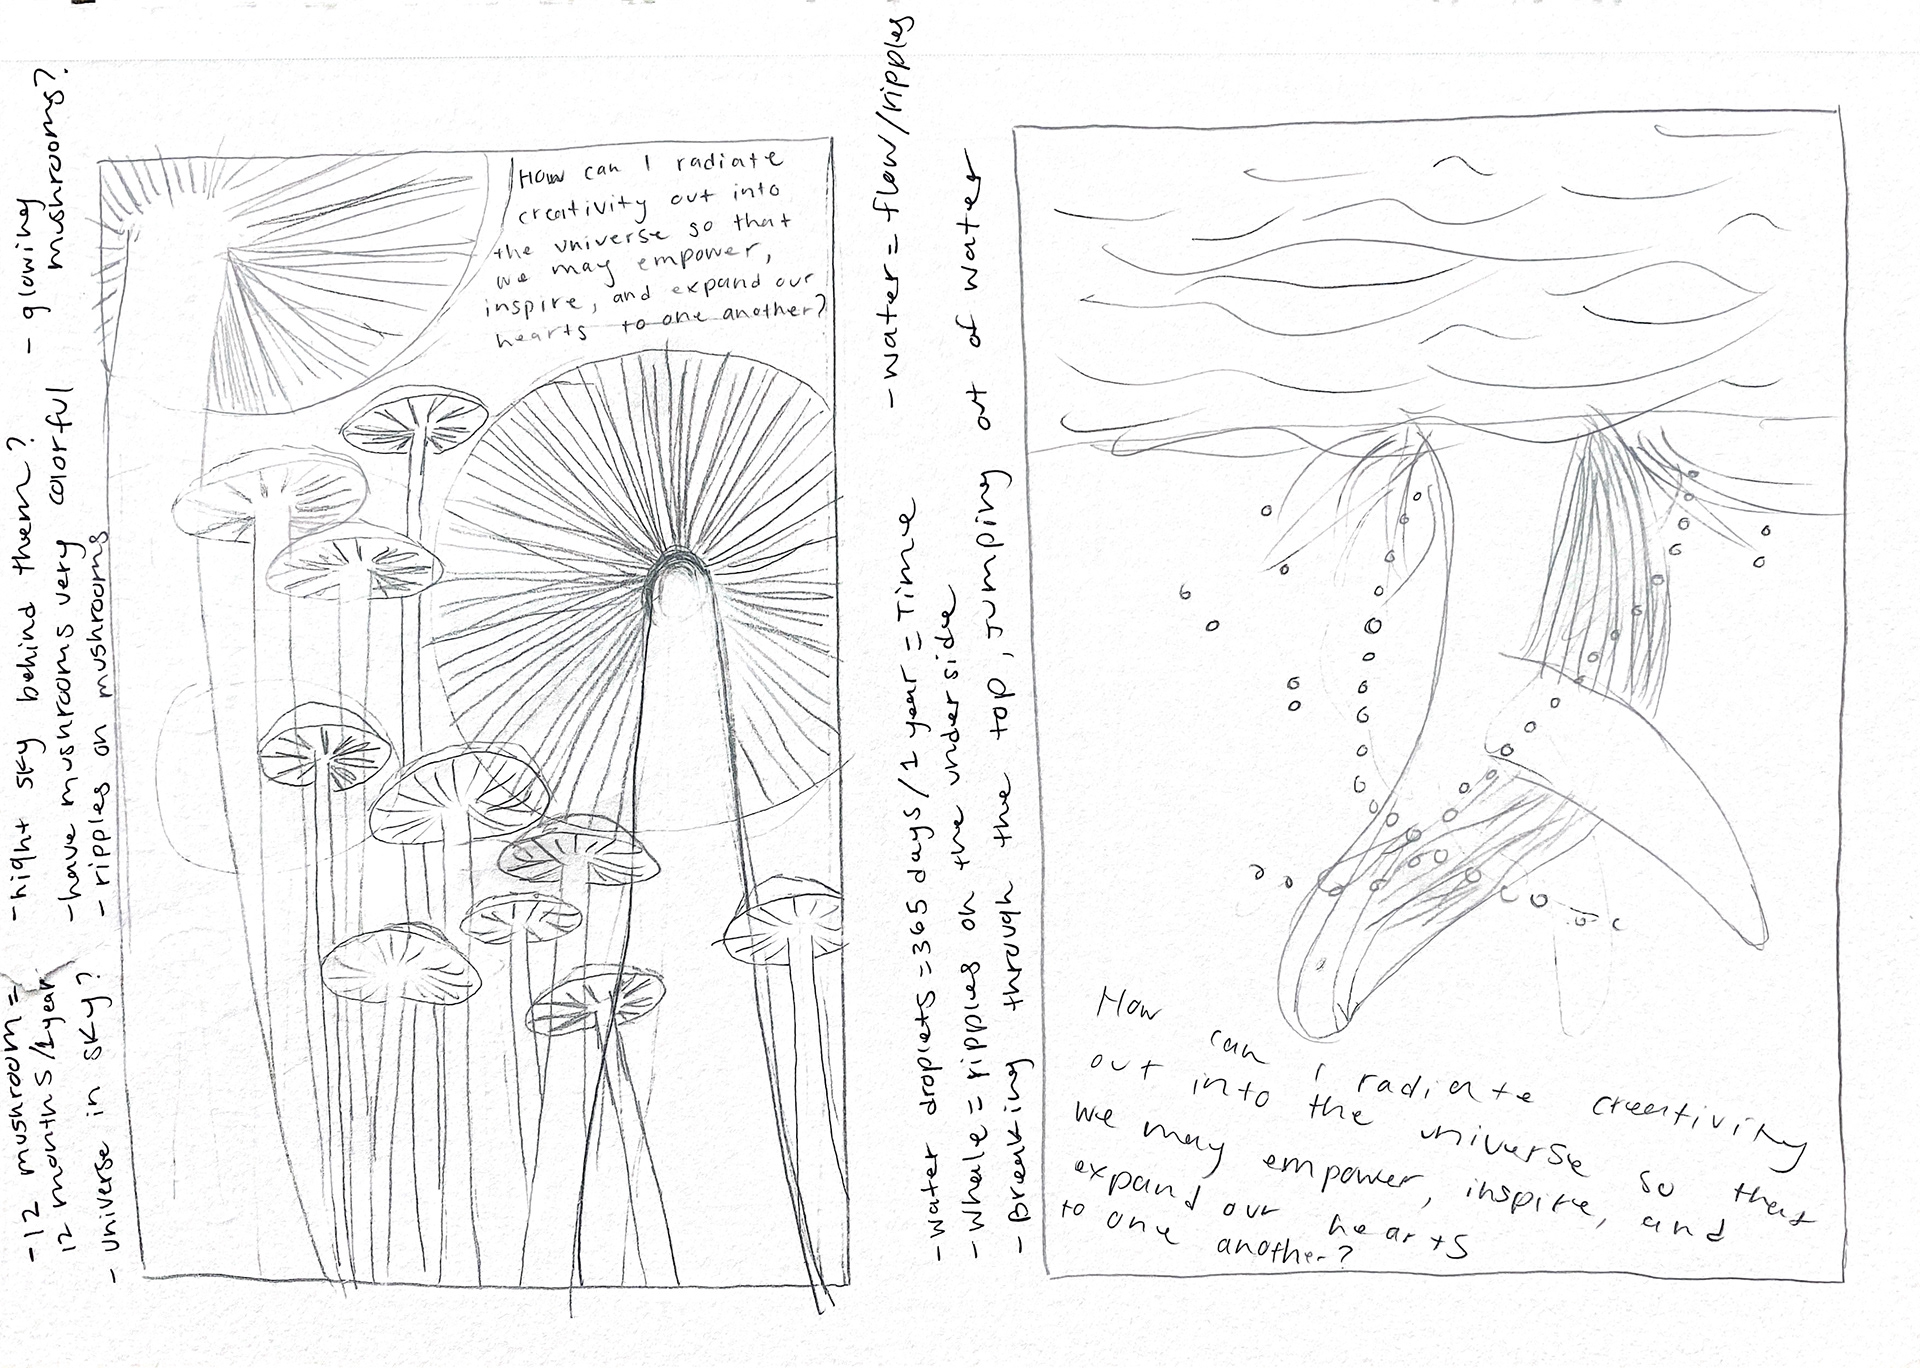 -12 mushroom =
12 months/1year
- universe in sky?
-night sky behind them?
-have mushrooms very colorful
- ripples on mushrooms
- glowing
mushrooms?
How can I radiate
creativity out into
the universe so that
we may empower,
inspire, and expand our
hearts to one another?
-water droplets=365 days/1 year = Time
-whale = ripples on the underside
-Breaking through the top, jumping out of water
-water=flow/ripples
How can I radiate creativity
out into the universe so that
we may empower, inspire, and
expand our hearts
to one another?